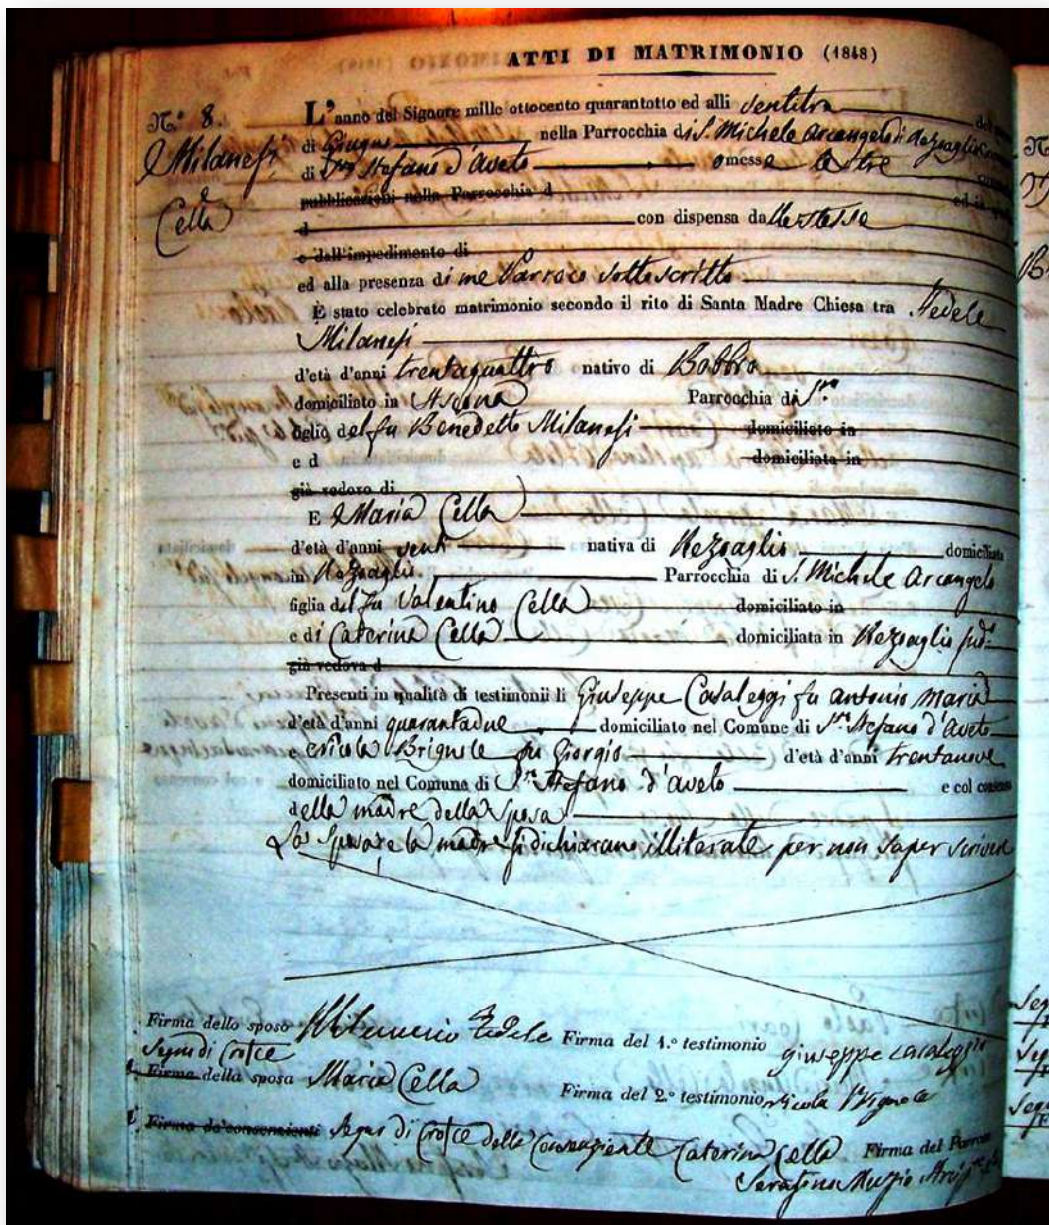 ATTI DI MATRIMONIO (1848)
N.º 8.
Milanesi
e
Cella
L'anno del Signore mille ottocento quarantotto ed alli ventitre del
di Giugno nella Parrocchia di S. Michele Arcangelo di Rezoaglio
di Sto Stefano d'Aveto omesse le tre
pubblicazioni nella Parrocchia d ed in
d con dispensa dalle stesse
e dall'impedimento di
ed alla presenza di me Parroco sottoscritto
È stato celebrato matrimonio secondo il rito di Santa Madre Chiesa tra Fedele
Milanesi
d'età d'anni trentaquattro nativo di Bobbio
domiciliato in Parrocchia di
figlio del fu Benedetto Milanesi domiciliato in
e d domiciliata in
già vedovo di
E Maria Cella
d'età d'anni venti nativa di Rezoaglio domiciliata
in Rezoaglio Parrocchia di S. Michele Arcangelo
figlia del fu Valentino Cella domiciliato in
e di Caterina Cella domiciliata in Rezoaglio
già vedova d
Presenti in qualità di testimonii li Giuseppe Casaleggi fu Antonio Maria
d'età d'anni quarantadue domiciliato nel Comune di Sto Stefano d'Aveto
e Nicola Brignole fu Giorgio d'età d'anni trentanove
domiciliato nel Comune di Sto Stefano d'Aveto e col consenso
della madre della sposa
La sposa e la madre si dichiarano illiterate per non saper scrivere
Firma dello sposo Milanesio Fedele Firma del 1.º testimonio giuseppe casaleggi
Segno di Croce
Firma della sposa Maria Cella Firma del 2.º testimonio Nicola Brignole
Firma de' consenzienti Segno di Croce della Consenziente Caterina Cella Firma del Parroco